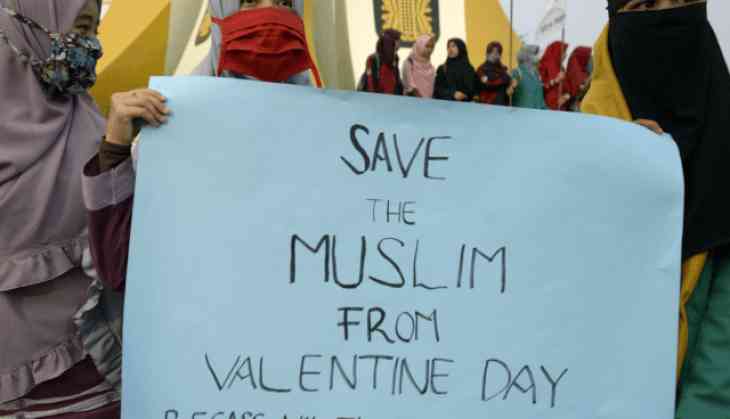 SAVE
THE
MUSLIM
FROM
VALENTINE DAY